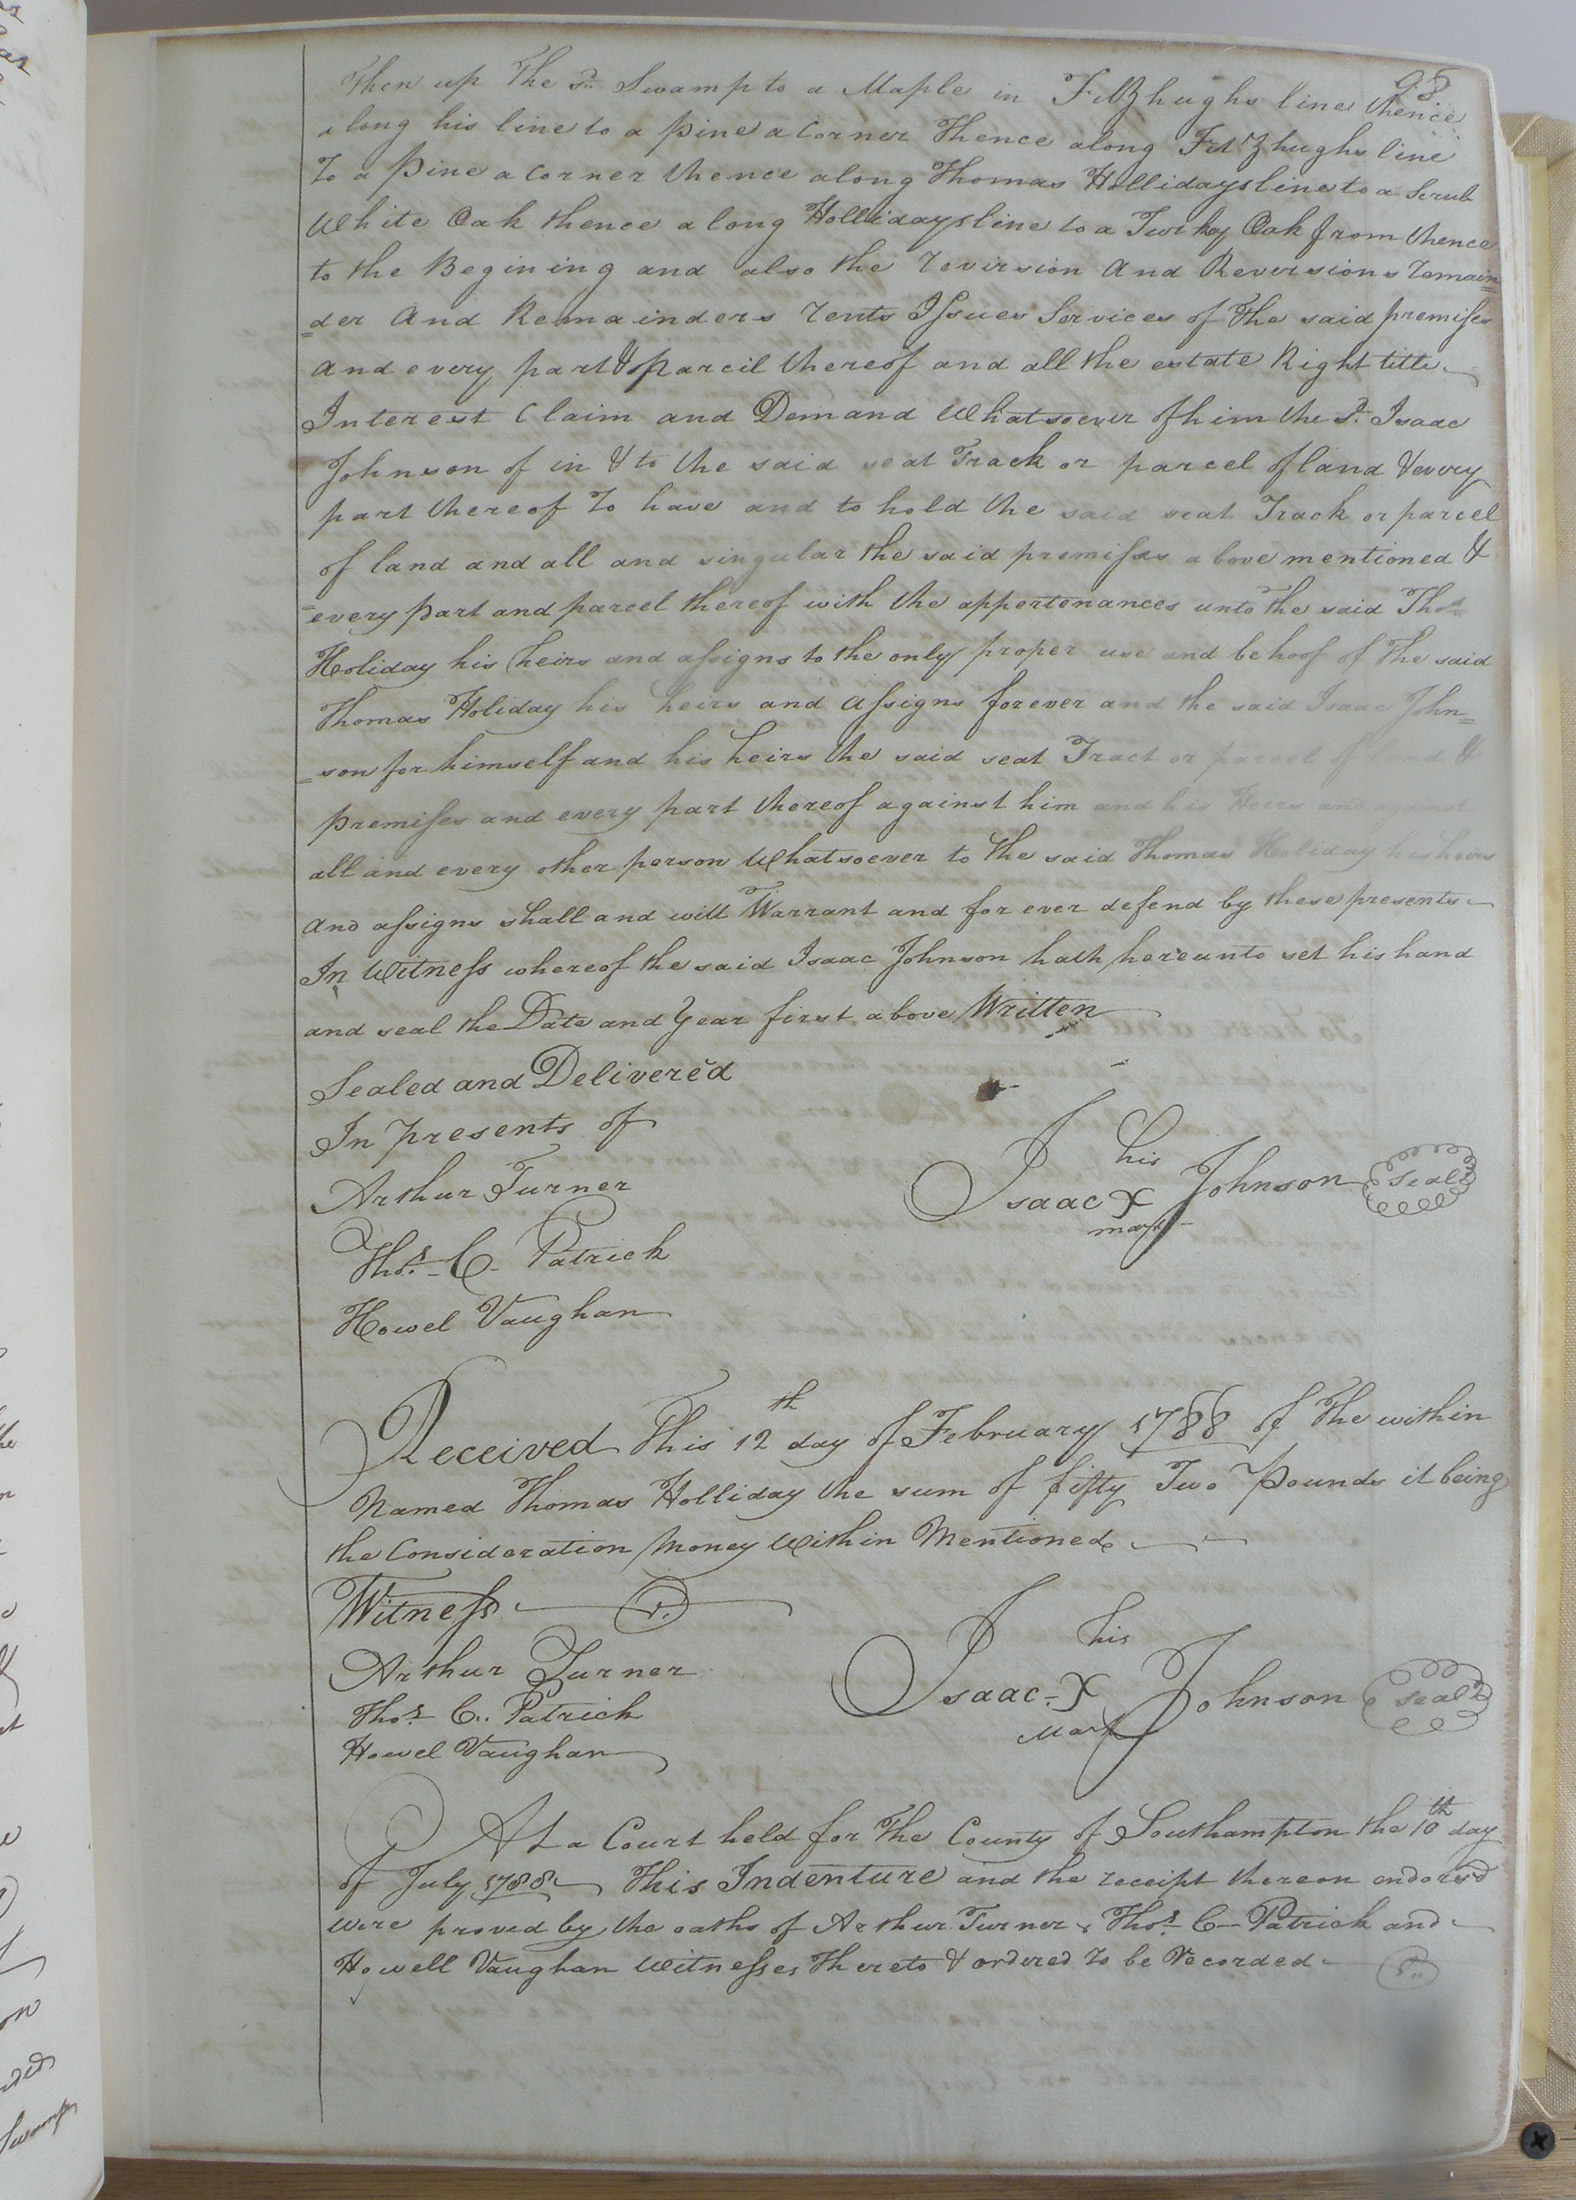 98
Then up the sd. Swamp to a Maple in FitZhughs line thence
along his line to a pine a Corner Thence along FitZhughs line
To a Pine a Corner thence along Thomas Hollidays line to a Scrub
White Oak thence along Hollidays line to a Turkey Oak from thence
to the Begining and also the revirsion And Reversions remain=
=der And Remainders rents Issues Services of The said premises
And every part & Parcil thereof and all the estate Right title
Interest Claim and Demand Whatsoever of him the sd. Isaac
Johnson of in & to the said seat Track or parcel of land & every
part thereof To have and to hold the said seat Track or parcel
of land and all and singular the said premises above mentioned &
=every part and parcel thereof with the appertenances unto the said Thos.
Holiday his heirs and assigns to the only proper use and behoof of The said
Thomas Holiday his heirs and assigns forever and the said Isaac John=
=son for himself and his heirs the said seat Tract or parcel of land &
premises and every part thereof against him and his Heirs and
all and every other person Whatsoever to the said Thomas Holiday his heirs
And assigns shall and will Warrant and for ever defend by these presents
In Witness whereof the said Isaac Johnson hath hereunto set his hand
and seal the Date and Year first above Written
Sealed and Delivered
In presents of
Arthur Turner
Thos. C. Patrick
Howel Vaughan
his
Isaac X Johnson Seal
mark
Received This 12th day of February 1788 of The within
Named Thomas Holliday the sum of fifty Two Pounds it being
the Consideration Money Within Mentioned
Witness
Arthur Turner
Thos. C. Patrick
Howel Vaughan
his
Isaac X Johnson Seal
Mark
At a Court held for The County of Southampton the 10th day
of July 1788 This Indenture and the receipt thereon endorsd
were proved by the oaths of Arthur Turner, Thos. C Patrick and
Howell Vaughan Witnesses Thereto & ordered To be Recorded